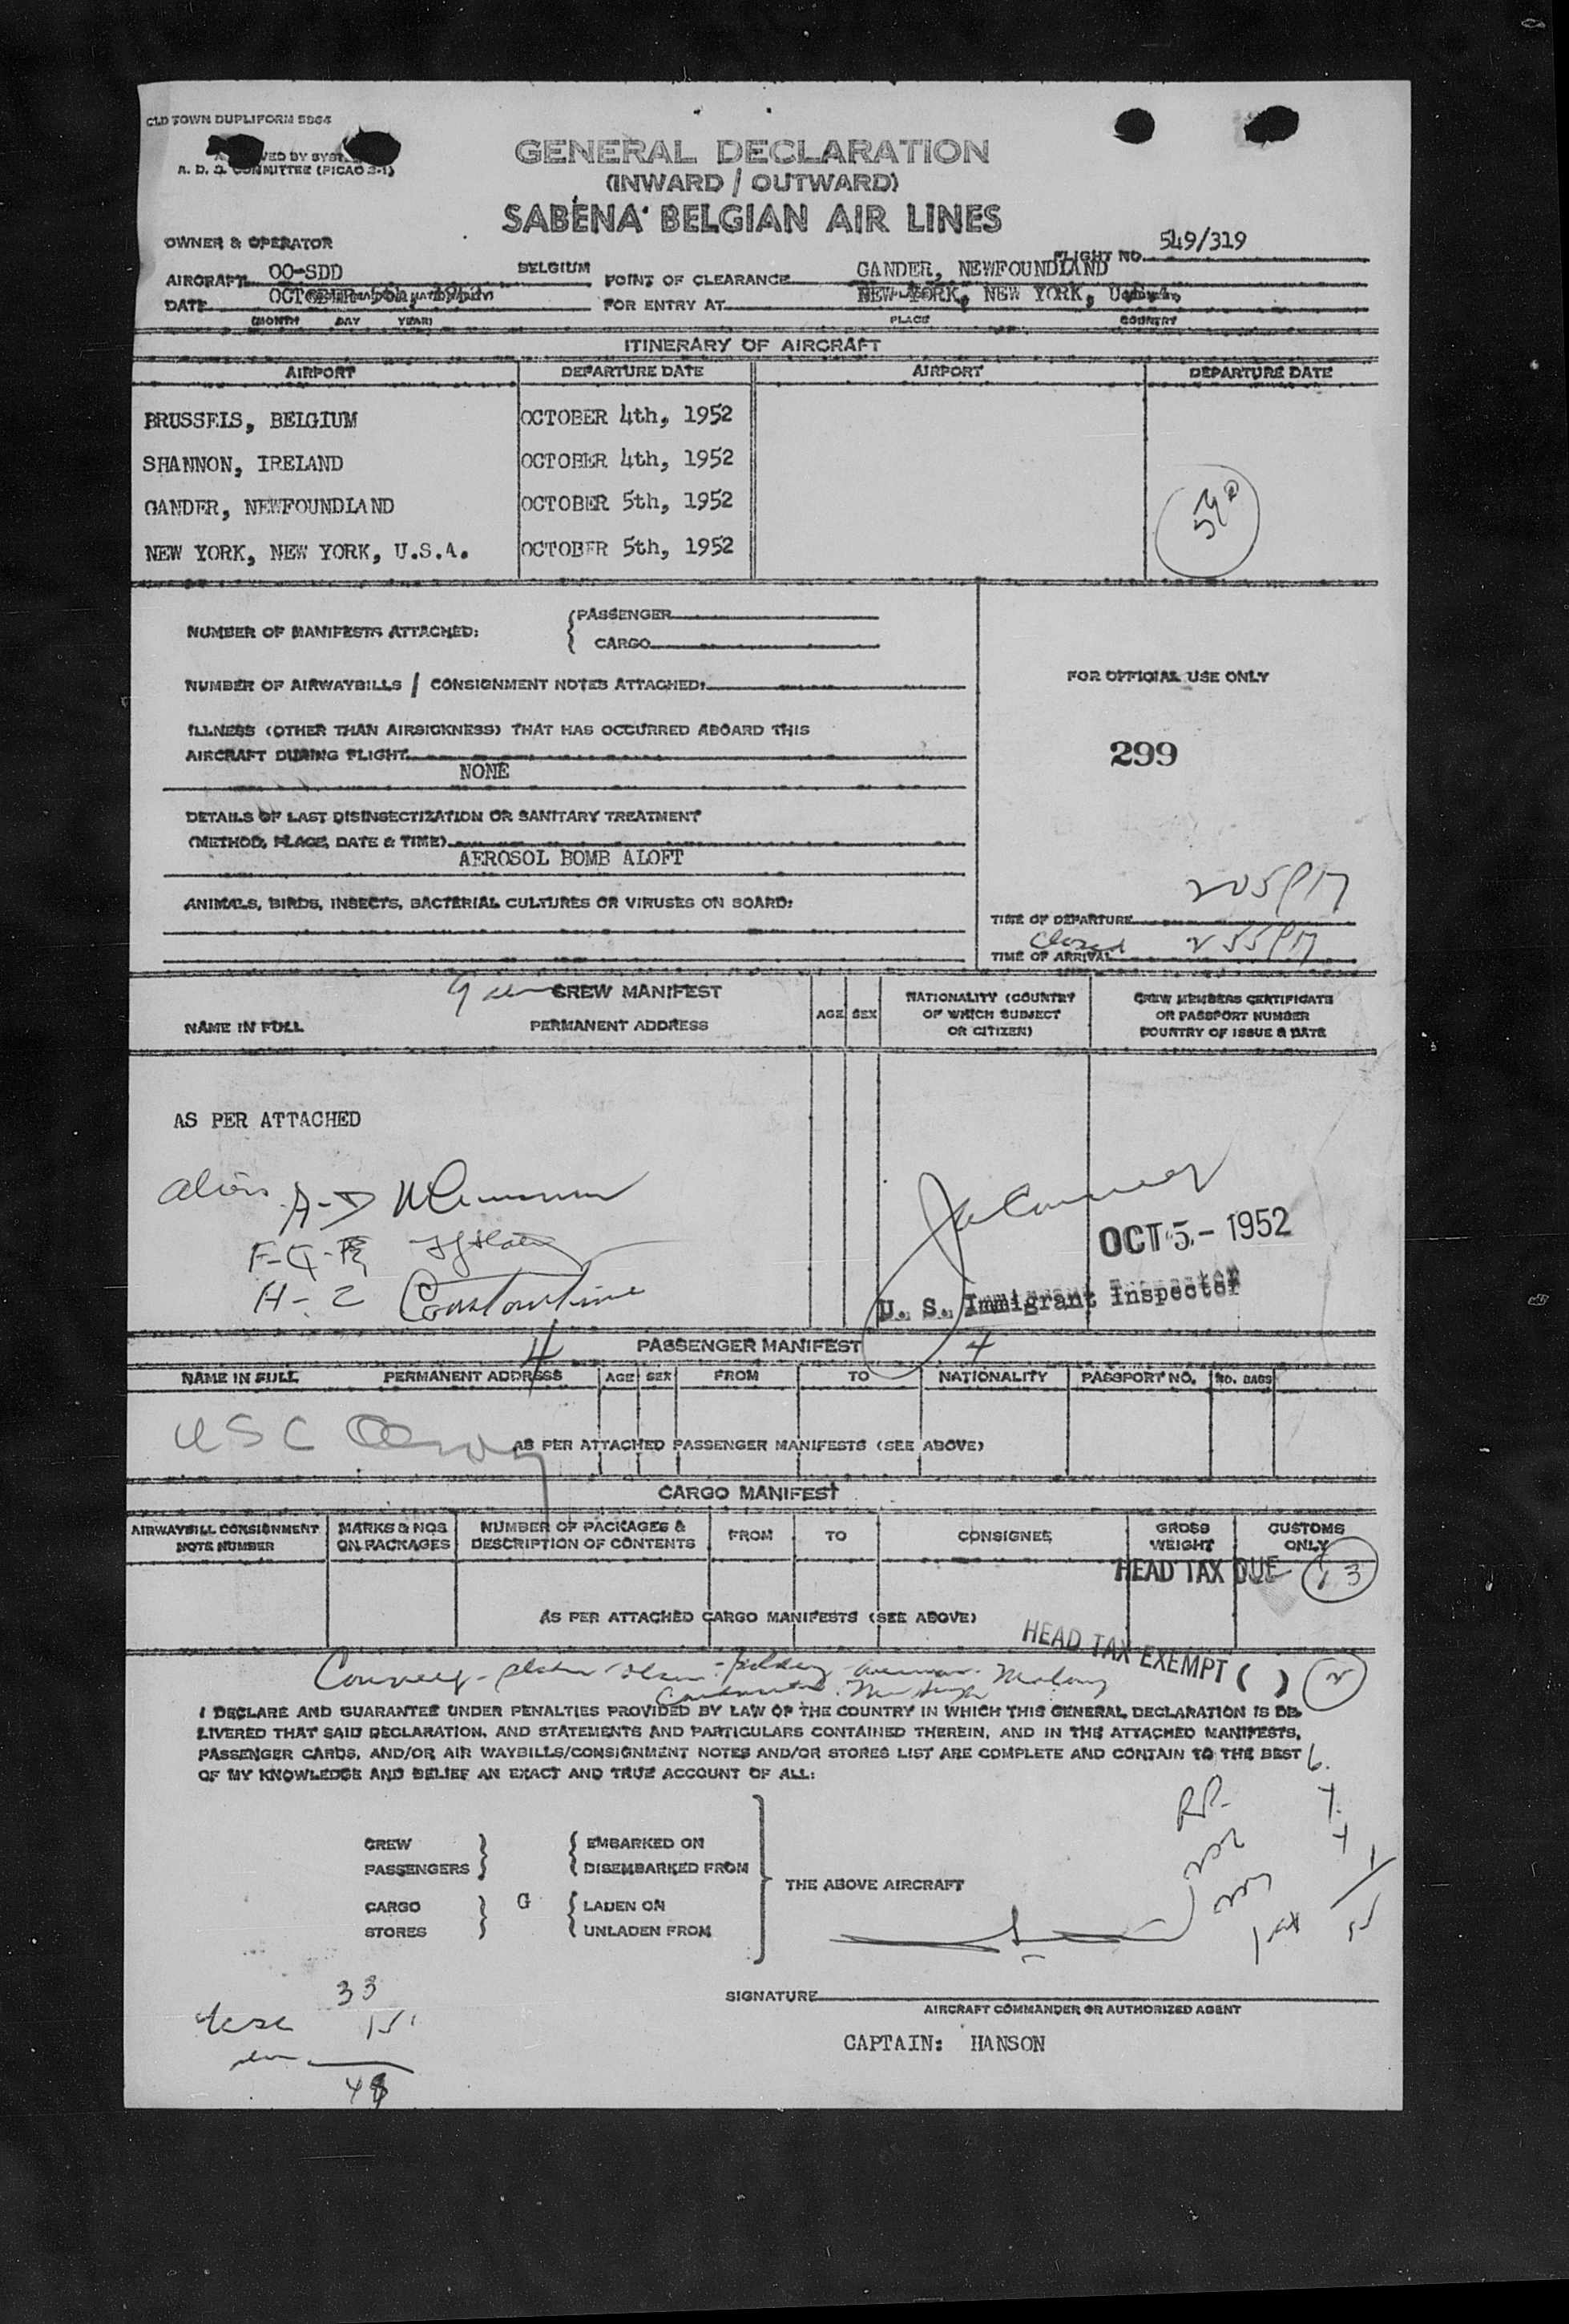 OLD TOWN DUPLIFORM 5964
A. D. D. COMMITTEE (PICAO 3-1)
GENERAL DECLARATION
(INWARD / OUTWARD)
SABENA BELGIAN AIR LINES
OWNER & OPERATOR
FLIGHT NO. 549/319
AIRCRAFT OO-SDD BELGIUM POINT OF CLEARANCE GANDER, NEWFOUNDLAND
DATE OCTOBER 5th, FOR ENTRY AT NEW YORK, NEW YORK,
(MONTH DAY YEAR) PLACE COUNTRY
ITINERARY OF AIRCRAFT
AIRPORT DEPARTURE DATE AIRPORT DEPARTURE DATE
BRUSSELS, BELGIUM OCTOBER 4th, 1952
SHANNON, IRELAND OCTOBER 4th, 1952
GANDER, NEWFOUNDLAND OCTOBER 5th, 1952
NEW YORK, NEW YORK, U.S.A. OCTOBER 5th, 1952
NUMBER OF MANIFESTS ATTACHED: { PASSENGER
CARGO
NUMBER OF AIRWAYBILLS / CONSIGNMENT NOTES ATTACHED:
FOR OFFICIAL USE ONLY
ILLNESS (OTHER THAN AIRSICKNESS) THAT HAS OCCURRED ABOARD THIS
AIRCRAFT DURING FLIGHT
NONE
299
DETAILS OF LAST DISINSECTIZATION OR SANITARY TREATMENT
(METHOD, PLACE, DATE & TIME)
AEROSOL BOMB ALOFT
ANIMALS, BIRDS, INSECTS, BACTERIAL CULTURES OR VIRUSES ON BOARD:
TIME OF DEPARTURE 205PM
Closed 255PM
TIME OF ARRIVAL
CREW MANIFEST
NAME IN FULL PERMANENT ADDRESS AGE SEX NATIONALITY (COUNTRY OF WHICH SUBJECT OR CITIZEN) CREW MEMBERS CERTIFICATE OR PASSPORT NUMBER COUNTRY OF ISSUE & DATE
AS PER ATTACHED
aliens A-D
F-G-
H-Z Constantine
OCT 5 - 1952
U. S. Immigrant Inspector
4 PASSENGER MANIFEST 4
NAME IN FULL PERMANENT ADDRESS AGE SEX FROM TO NATIONALITY PASSPORT NO. NO. BAGS
USC
AS PER ATTACHED PASSENGER MANIFESTS (SEE ABOVE)
CARGO MANIFEST
AIRWAYBILL CONSIGNMENT NOTE NUMBER MARKS & NOS ON PACKAGES NUMBER OF PACKAGES & DESCRIPTION OF CONTENTS FROM TO CONSIGNEE GROSS WEIGHT CUSTOMS ONLY
HEAD TAX DUE
AS PER ATTACHED CARGO MANIFESTS (SEE ABOVE)
HEAD TAX EXEMPT ( )
I DECLARE AND GUARANTEE UNDER PENALTIES PROVIDED BY LAW OF THE COUNTRY IN WHICH THIS GENERAL DECLARATION IS DE-
LIVERED THAT SAID DECLARATION, AND STATEMENTS AND PARTICULARS CONTAINED THEREIN, AND IN THE ATTACHED MANIFESTS,
PASSENGER CARDS, AND/OR AIR WAYBILLS/CONSIGNMENT NOTES AND/OR STORES LIST ARE COMPLETE AND CONTAIN TO THE BEST
OF MY KNOWLEDGE AND BELIEF AN EXACT AND TRUE ACCOUNT OF ALL:
CREW EMBARKED ON
PASSENGERS DISEMBARKED FROM
THE ABOVE AIRCRAFT
CARGO G LADEN ON
STORES UNLADEN FROM
33
15
48
SIGNATURE
AIRCRAFT COMMANDER OR AUTHORIZED AGENT
CAPTAIN: HANSON